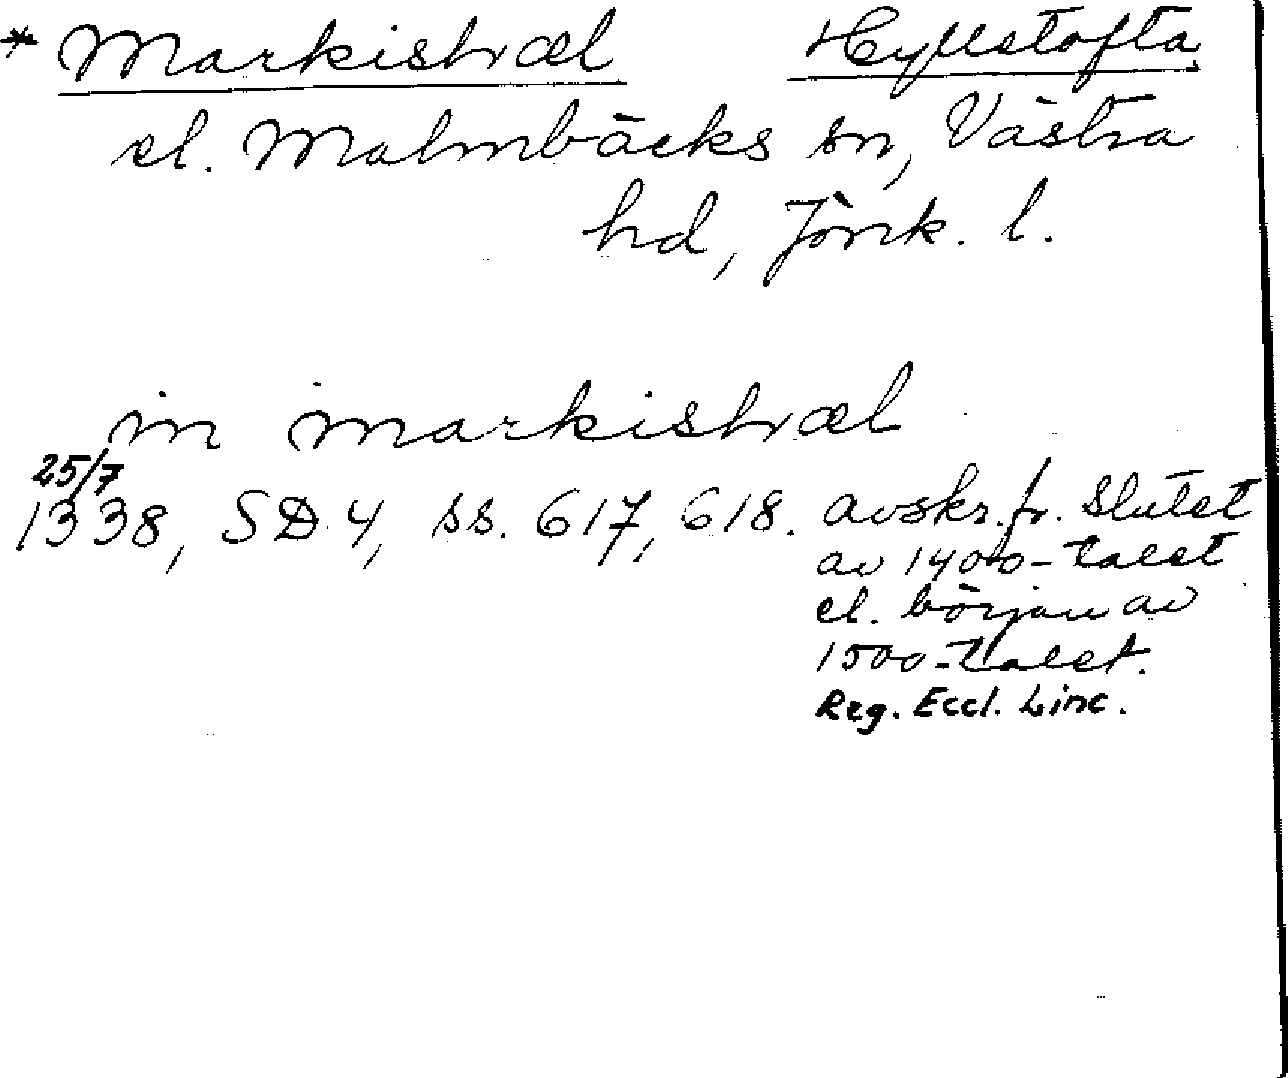 * Markistræl Hyllstofta
el. Malmbäcks sn, Västra
hd, Jönk. l.
in markistræl
25/7
1338, SD 4, ss. 617, 618. avskr. fr. slutet
av 1400-talet
el. början av
1500-talet.
Reg. Eccl. Linc.